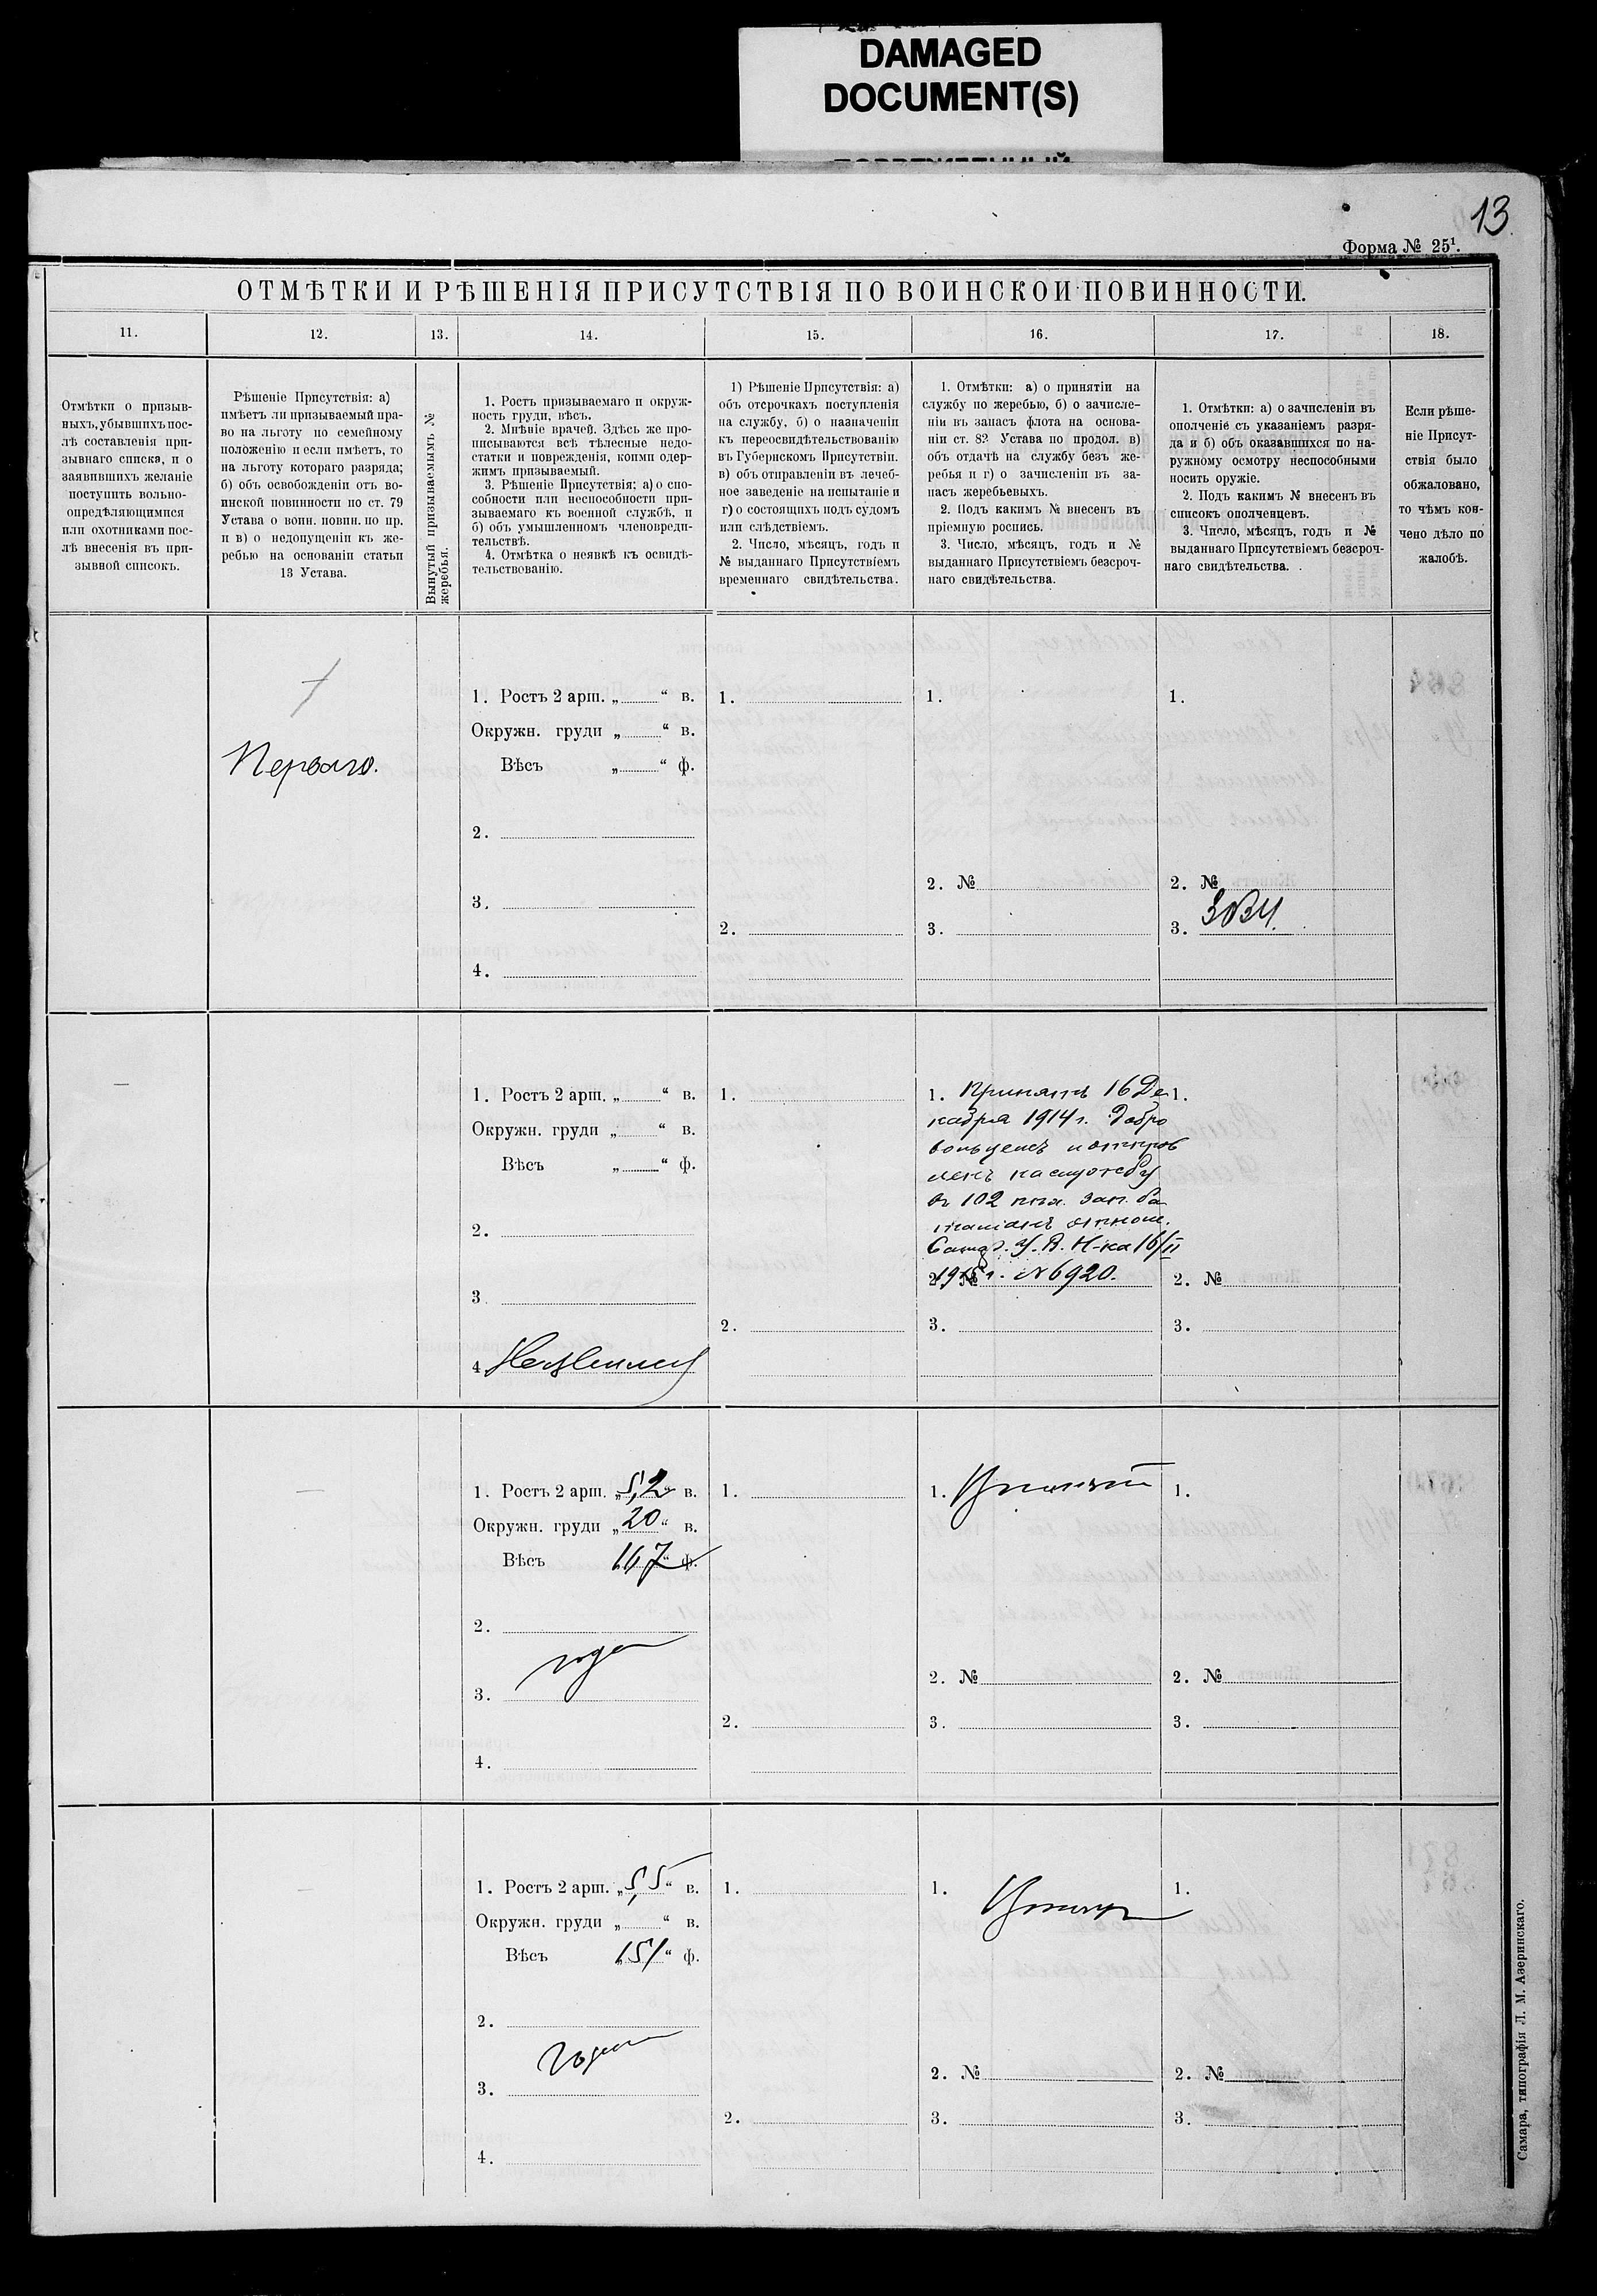 DAMAGED
DOCUMENT(S)
13
Форма № 25¹.
ОТМѢТКИ И РѢШЕНІЯ ПРИСУТСТВІЯ ПО ВОИНСКОЙ ПОВИННОСТИ.
11.
12.
13.
14.
15.
16.
17.
18.
Отмѣтки о призыв-
ныхъ, убывшихъ пос-
лѣ составленія при-
зывнаго списка, и о
заявившихъ желаніе
поступить вольно-
опредѣляющимися
или охотниками пос-
лѣ внесенія въ при-
зывной списокъ.
Рѣшеніе Присутствія: а)
имѣетъ ли призываемый пра-
во на льготу по семейному
положенію и если имѣетъ, то
на льготу котораго разряда;
б) объ освобожденіи отъ во-
инской повинности по ст. 79
Устава о воин. повин. по пр.
и в) о недопущеніи къ же-
ребью на основаніи статьи
13 Устава.
Вынутый призываемымъ №
жеребья.
1. Ростъ призываемаго и окруж-
ность груди, вѣсъ.
2. Мнѣніе врачей. Здѣсь же про-
писываются всѣ тѣлесные недо-
статки и поврежденія, коими одер-
жимъ призываемый.
3. Рѣшеніе Присутствія; а) о спо-
собности или неспособности при-
зываемаго къ военной службѣ, и
б) объ умышленномъ членовреди-
тельствѣ.
4. Отмѣтка о неявкѣ къ освидѣ-
тельствованію.
1) Рѣшеніе Присутствія: а)
объ отсрочкахъ поступленія
на службу, б) о назначеніи
къ переосвидѣтельствованію
въ Губернскомъ Присутствіи.
в) объ отправленіи въ лечеб-
ное заведеніе на испытаніе и
г) о состоящихъ подъ судомъ
или слѣдствіемъ.
2. Число, мѣсяцъ, годъ и
№ выданнаго Присутствіемъ
временнаго свидѣтельства.
1. Отмѣтки: а) о принятіи на
службу по жеребью, б) о зачисле-
ніи въ запасъ флота на основа-
ніи ст. 82 Устава по продол. в)
объ отдачѣ на службу безъ же-
ребья и г) о зачисленіи въ за-
пасъ жеребьевыхъ.
2. Подъ какимъ № внесенъ въ
пріемную роспись.
3. Число, мѣсяцъ, годъ и №
выданнаго Присутствіемъ безсроч-
наго свидѣтельства.
1. Отмѣтки: а) о зачисленіи въ
ополченіе съ указаніемъ разря-
да и б) объ оказавшихся по на-
ружному осмотру неспособными
носить оружіе.
2. Подъ какимъ № внесенъ въ
списокъ ополченцевъ.
3. Число, мѣсяцъ, годъ и №
выданнаго Присутствіемъ безсроч-
наго свидѣтельства.
Если рѣше-
ніе Присут-
ствія было
обжаловано,
то чѣмъ кон-
чено дѣло по
жалобѣ.
Перваго.
1. Ростъ 2 арш. „ “ в.
Окружн. груди „ “ в.
Вѣсъ „ “ ф.
2.
3.
4.
1.
2.
1.
2. №
3.
1.
2. №
3.
1. Ростъ 2 арш. „ “ в.
Окружн. груди „ “ в.
Вѣсъ „ “ ф.
2.
3
4.
1.
2.
1. Принятъ 16 Де
кабря 1914 г. Добро
вольцемъ и отправ
ленъ на службу
въ 102 пѣх. зап. ба
таліонъ отнош.
У. В. Н-ка 16/II
1915 г. № 6920.
2. №
3.
1.
2. №
3.
1. Ростъ 2 арш. „5,2“ в.
Окружн. груди „20“ в.
Вѣсъ 167 “ ф.
2.
годен
3.
4.
1.
2.
1. Принятъ
2. №
3.
1.
2. №
3.
1. Ростъ 2 арш. „5,5“ в.
Окружн. груди „ “ в.
Вѣсъ „151“ ф.
2.
Годен
3.
4.
1.
2.
1.
Принятъ
2. №
3.
1.
2. №
3.
Самара, типографія Л. М. Азеринскаго.